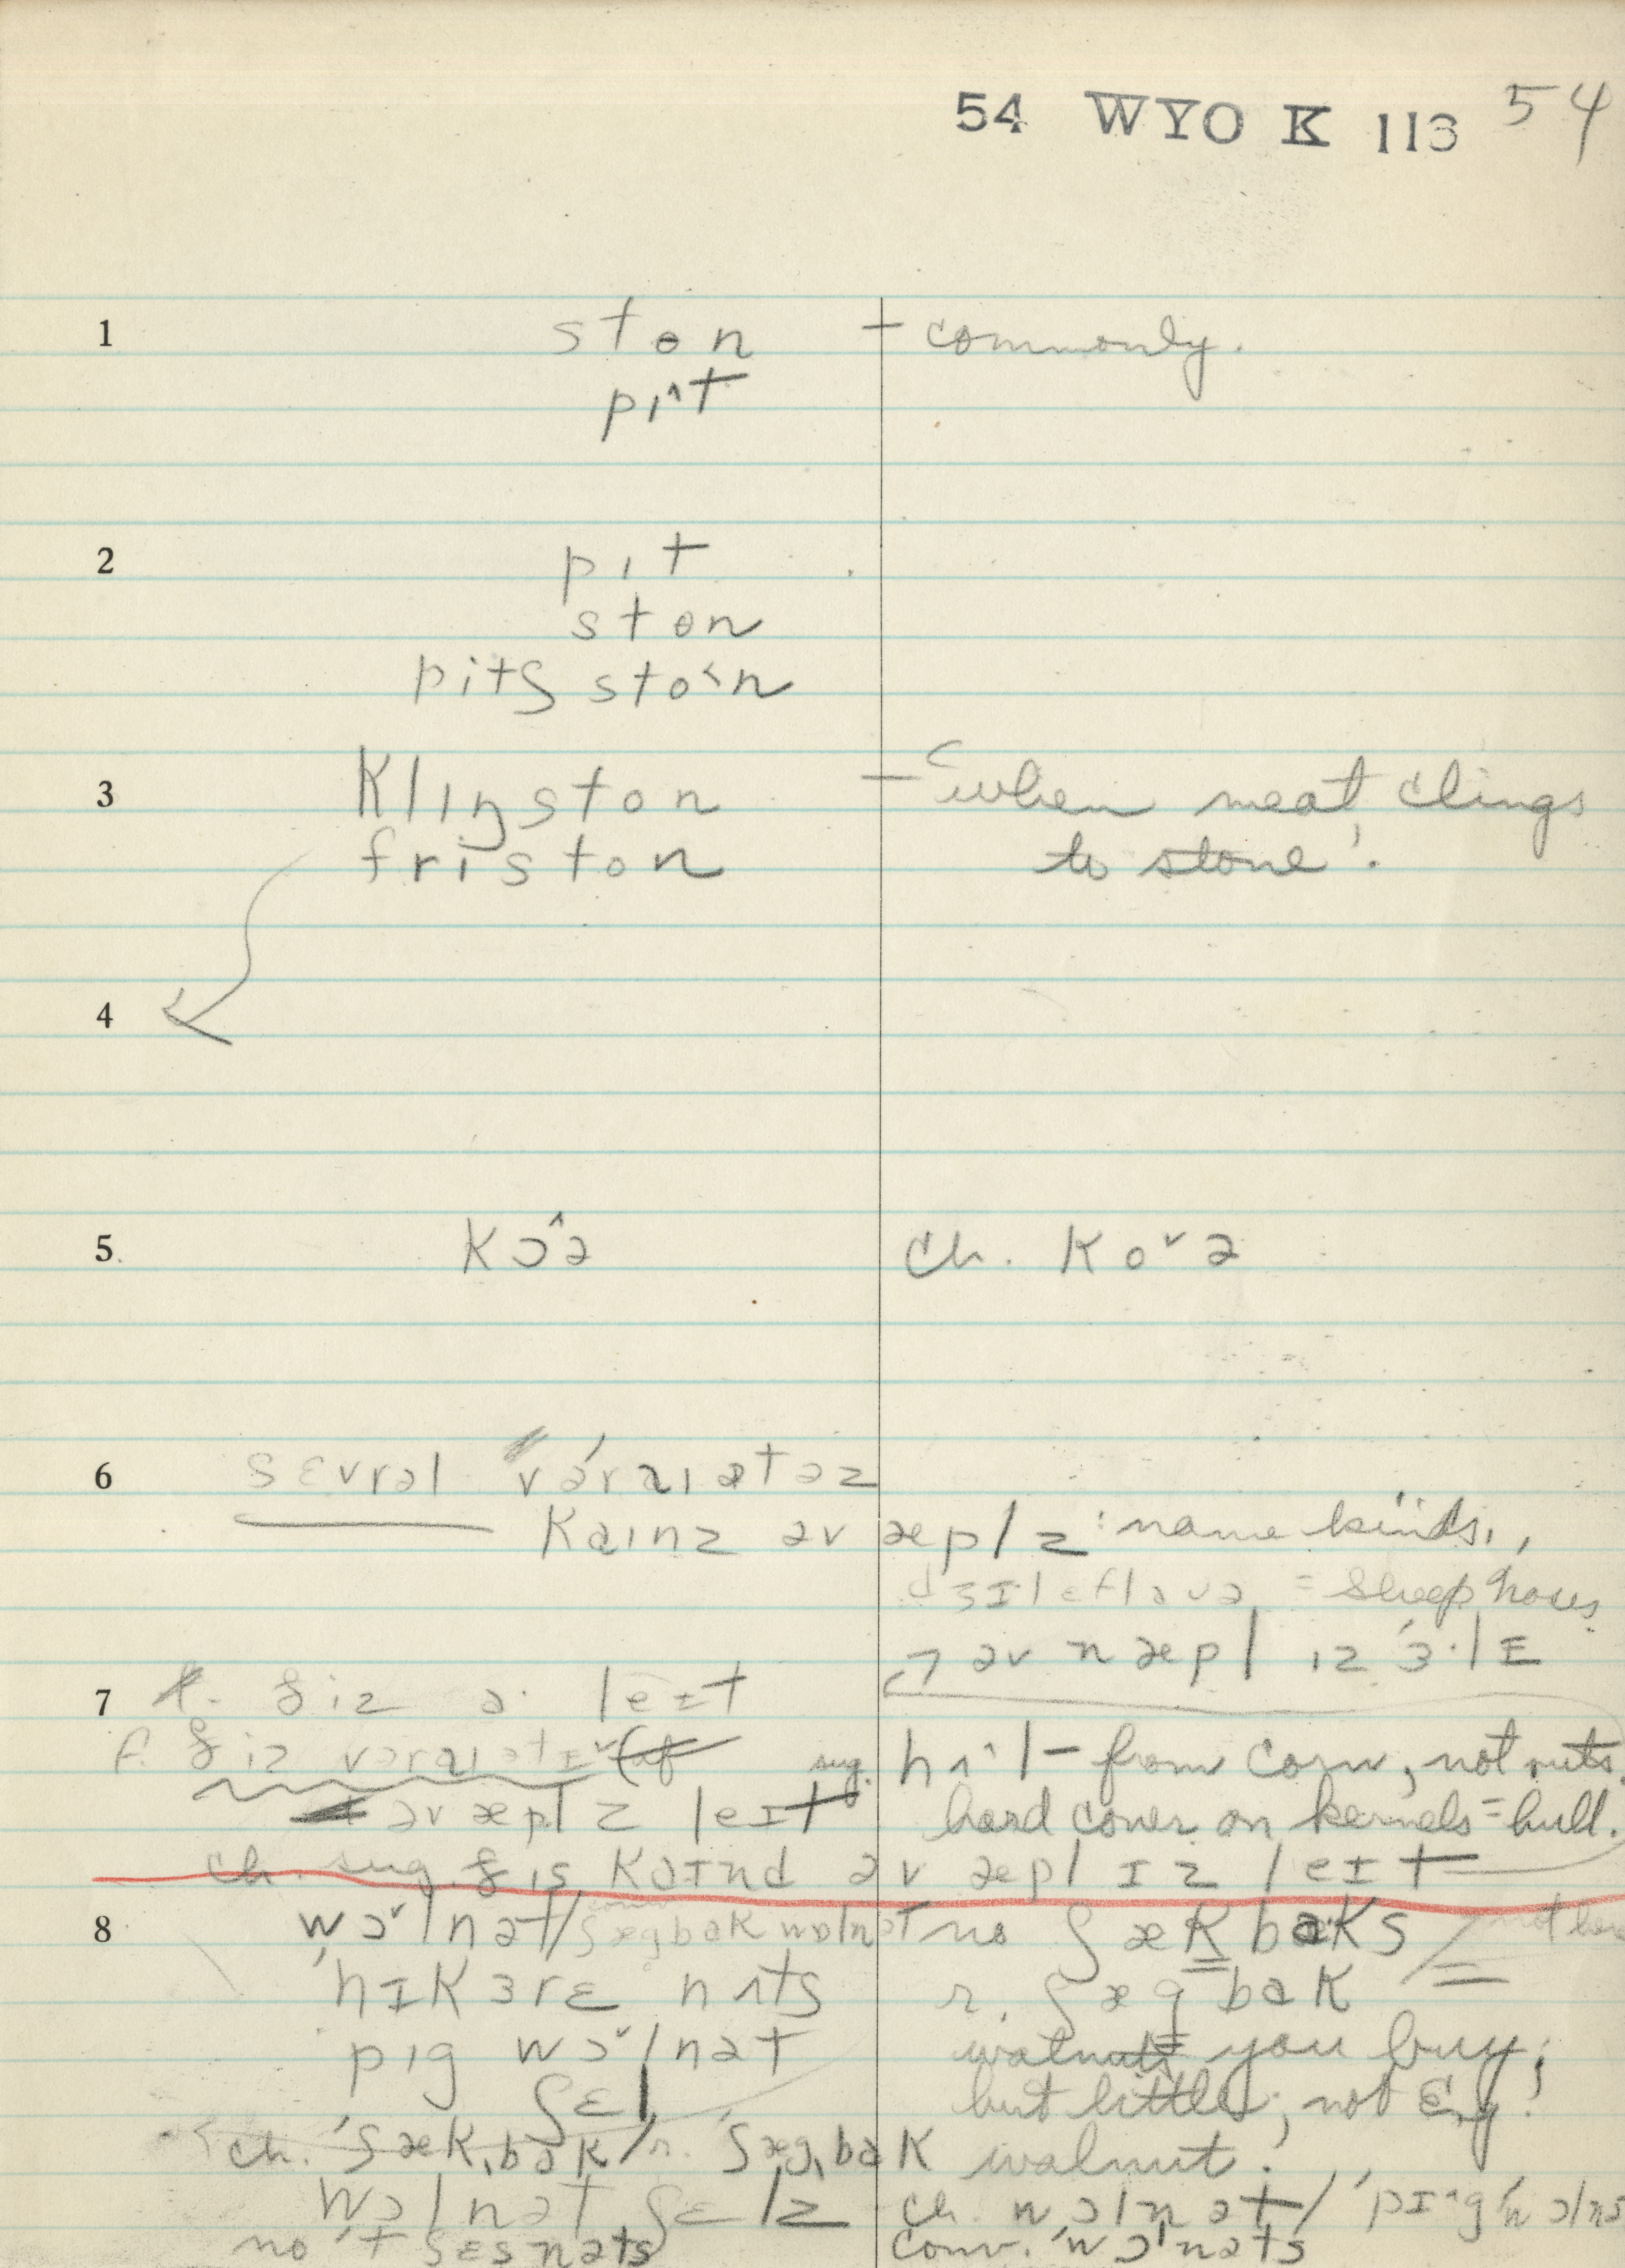 54 WYO K 113 54
1 stɵn – commonly.
pɪ^t
2 pɪt
stɵn
pitʃ sto˂n
3 Klɪŋston – "when meat clings
friston to stone'.
4
5. Kɔ^ə ch. Koˇə
6 sɛvrəl vəˈraɪətəz
Kaɪnz əv æplz: name kinds,
= sheep nose
əv n æpl ɪz ɜ·lɪ
7 ðiz ə· leɪt
ðiz vəraɪətɪ
sug. hʌ·l – from corn, not nuts.
əv æplz leɪt hard cover on kernels = hull.
ch. sug. ðis Kaɪnd əv æpl ɪz leɪt
8 wɔˇlnət / ʃægbɑk wɔlnət no ʃæK bɑKs
hɪKɜrɛ nʌts r. ʃægbɑK
pɪg wɔˇlnət walnuts you buy;
ʃɛl but little, not Eng.
ch. ˈʃæKˌbɑK / r. ˈʃægˌbɑK walnut.
wɔlnət ʃɛlz ch. wɔlnət /
no tʃɛsnəts conv. wɔlnəts